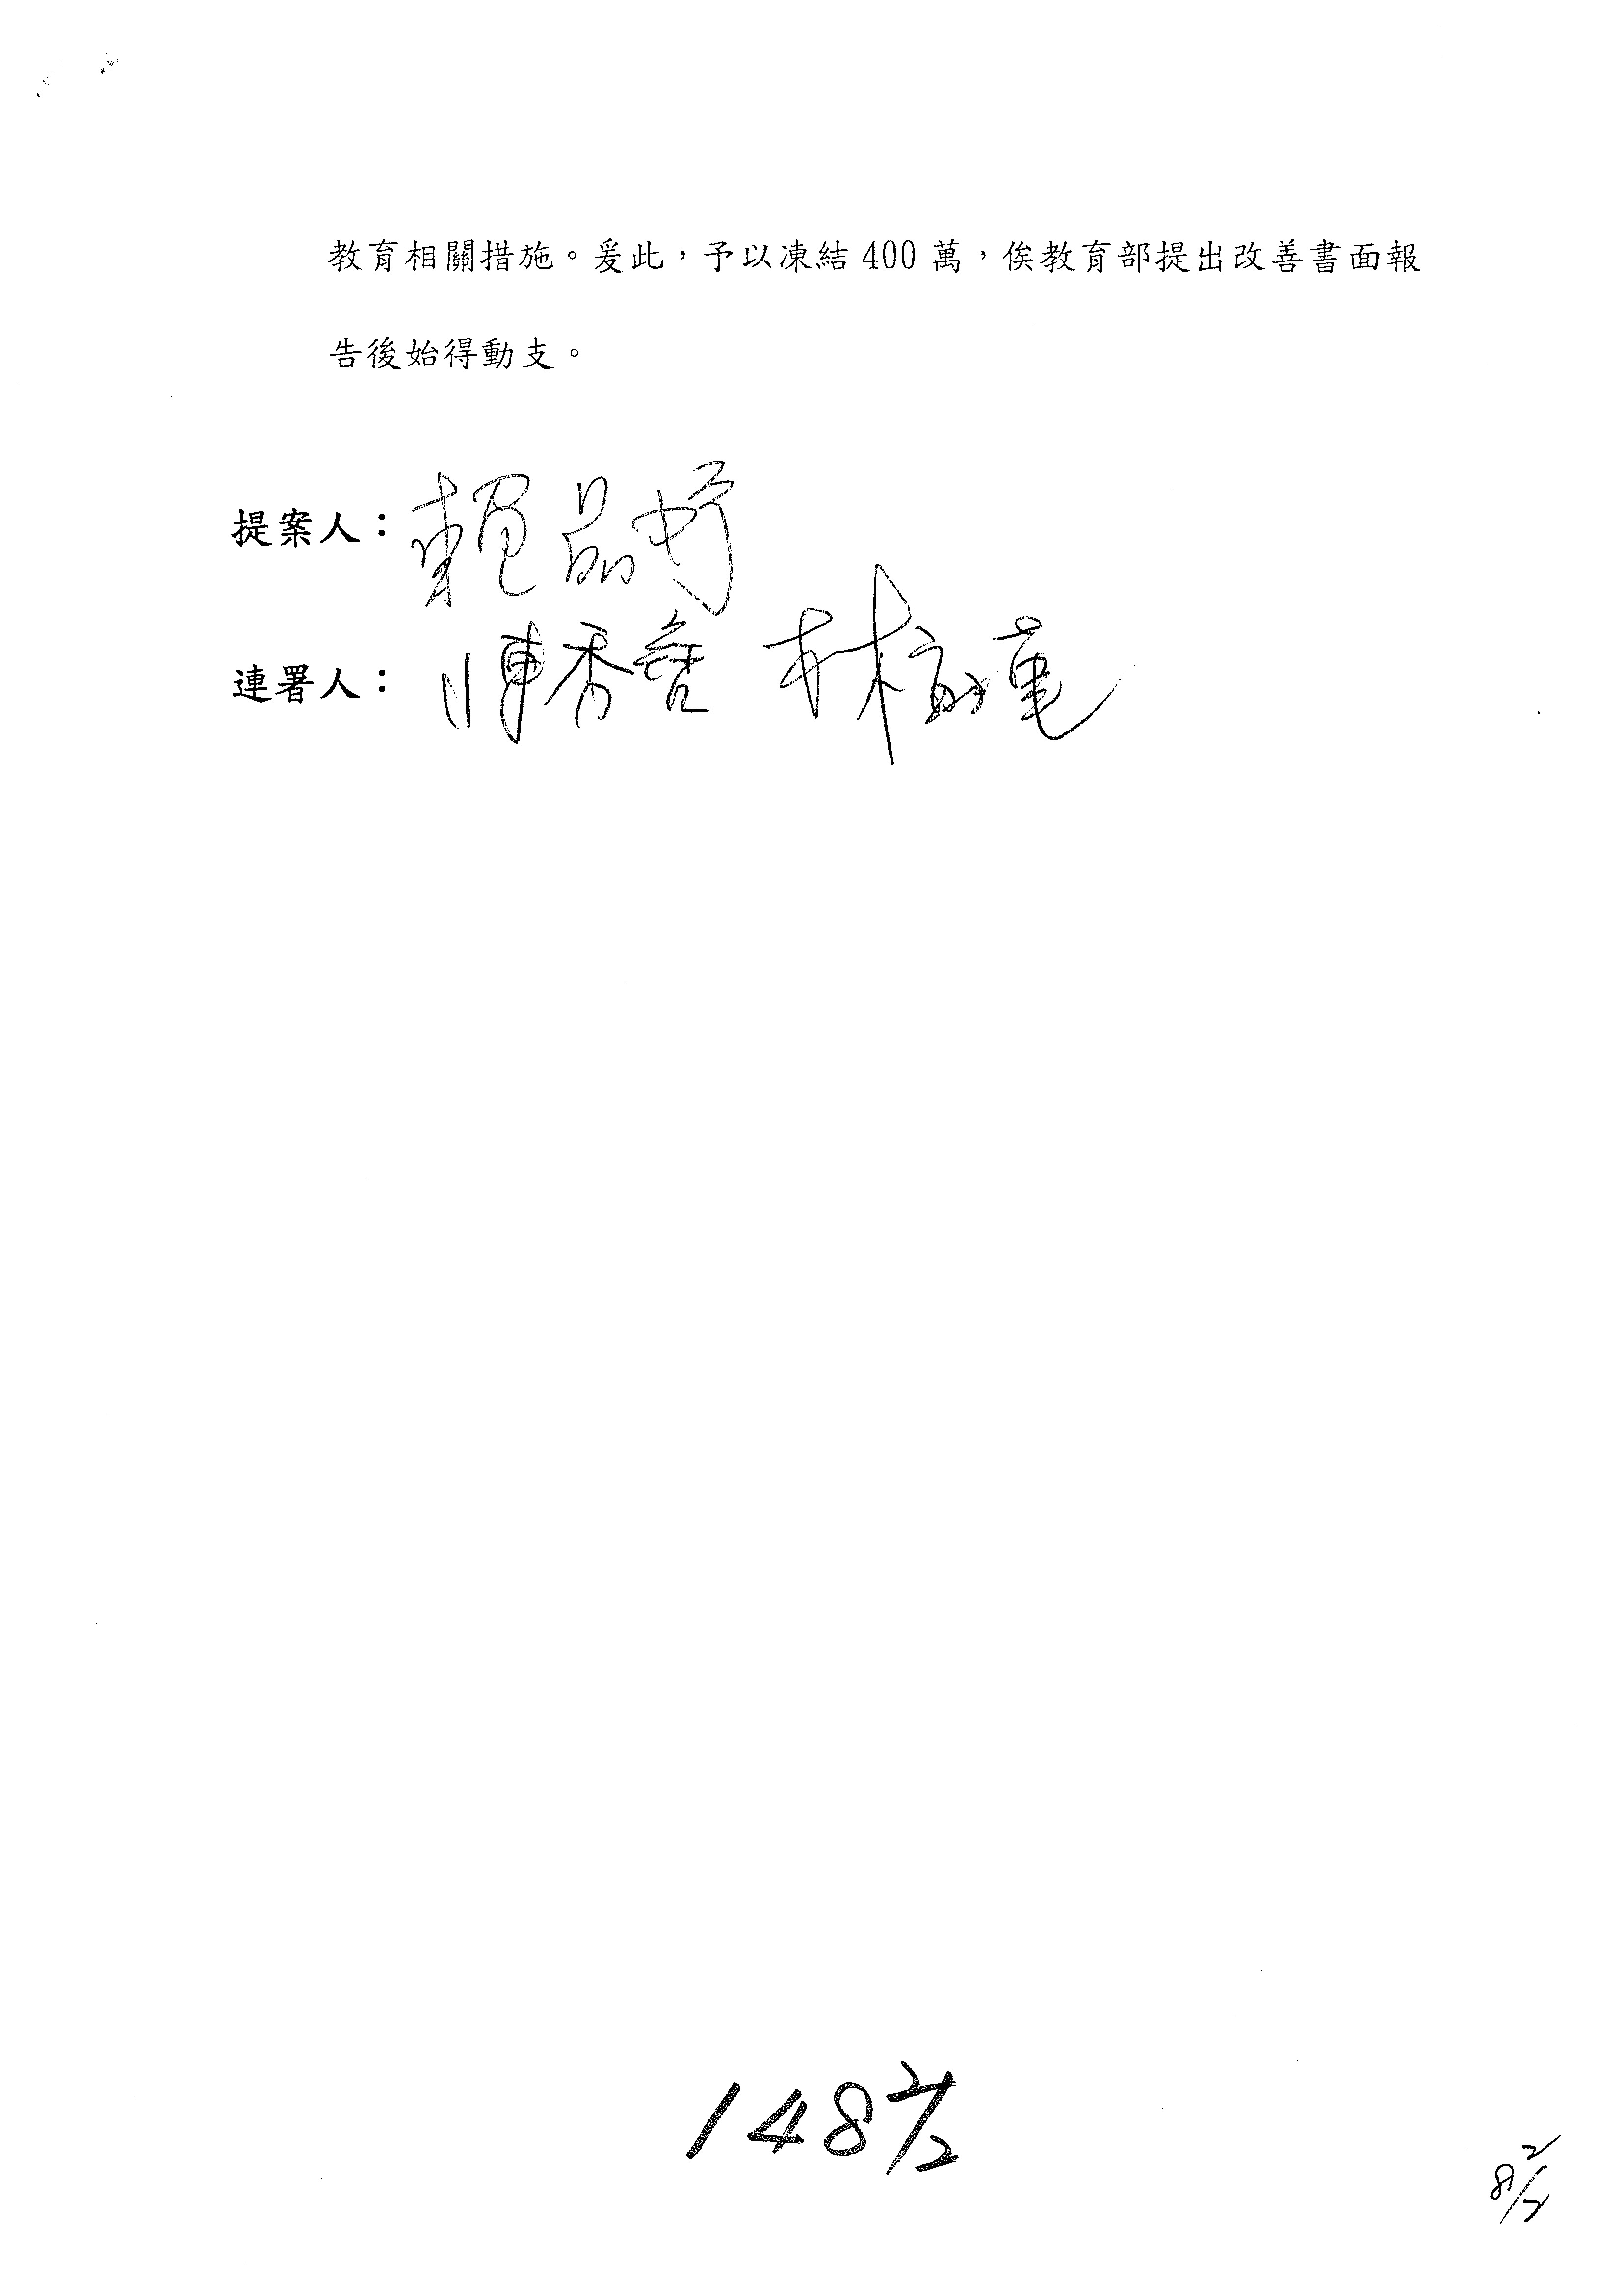 教育相關措施。爰此，予以凍結 400 萬，俟教育部提出改善書面報
告後始得動支。
提案人：賴品妤
連署人：陳秀寳 林宜瑾
148 2/2
8 2/2